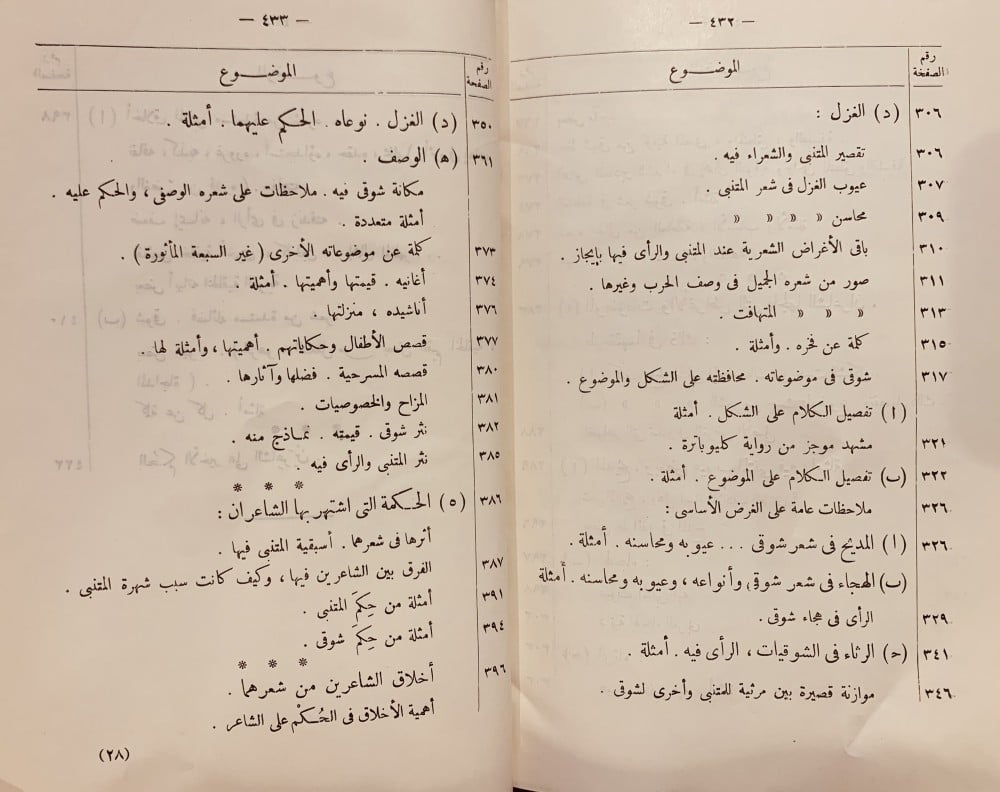 — ٤٣٢ —
رقم الصفحة
الموضـــوع
٣٠٦ (د) الغزل :
٣٠٦ تقصير المتنبى والشعراء فيه .
٣٠٧ عيوب الغزل فى شعر المتنبى .
٣٠٩ محاسن » » » »
٣١٠ باقى الأغراض الشعرية عند المتنبى والرأى فيها بإيجاز .
٣١١ صور من شعره الجميل فى وصف الحرب وغيرها .
٣١٣ » » » المتهافت .
٣١٥ كلمة عن فخره . وأمثلة .
٣١٧ شوقى فى موضوعاته . محافظته على الشكل والموضوع .
(ا) تفصيل الكلام على الشكل . أمثلة
٣٢١ مشهد موجز من رواية كليوباترة .
٣٢٢ (ب) تفصيل الكلام على الموضوع . أمثلة .
٣٢٦ ملاحظات عامة على الغرض الأساسى :
٣٢٦ (ا) المديح فى شعر شوقى ... عيوبه ومحاسنه . أمثلة .
(ب) الهجاء فى شعر شوقى وأنواعه ، وعيوبه ومحاسنه . أمثلة
٣٢٩ الرأى فى هجاء شوقى .
٣٤١ (ح) الرثاء فى الشوقيات ، الرأى فيه . أمثلة .
٣٤٦ موازنة قصيرة بين مرثية للمتنبى وأخرى لشوقى .
— ٤٣٣ —
رقم الصفحة
الموضـــوع
٣٥٠ (د) الغزل . نوعاه . الحكم عليهما . أمثلة .
٣٦١ (ه) الوصف .
مكانة شوقى فيه . ملاحظات على شعره الوصفى ، والحكم عليه .
أمثلة متعددة .
٣٧٣ كلمة عن موضوعاته الأخرى ( غير السبعة المأثورة ) .
٣٧٤ أغانيه . قيمتها وأهميتها . أمثلة .
٣٧٦ أناشيده ، منزلتها .
٣٧٧ قصص الأطفال وحكاياتهم . أهميتها ، وأمثلة لها .
٣٨٠ قصصه المسرحية . فضلها وآثارها .
٣٨١ المزاح والخصوصيات .
٣٨٢ نثر شوقى . قيمته . نماذج منه .
٣٨٥ نثر المتنبى والرأى فيه .
* * *
٣٨٦ (٥) الحكمة التى اشتهر بها الشاعران :
أثرها فى شعرهما . أسبقية المتنبى فيها .
٣٨٧ الفرق بين الشاعرين فيها ، وكيف كانت سبب شهرة المتنبى .
٣٩١ أمثلة من حِكَم المتنبى .
٣٩٤ أمثلة من حِكَم شوقى .
* * *
٣٩٦ أخلاق الشاعرين من شعرهما .
أهمية الأخلاق فى الحُكْم على الشاعر .
(٢٨)